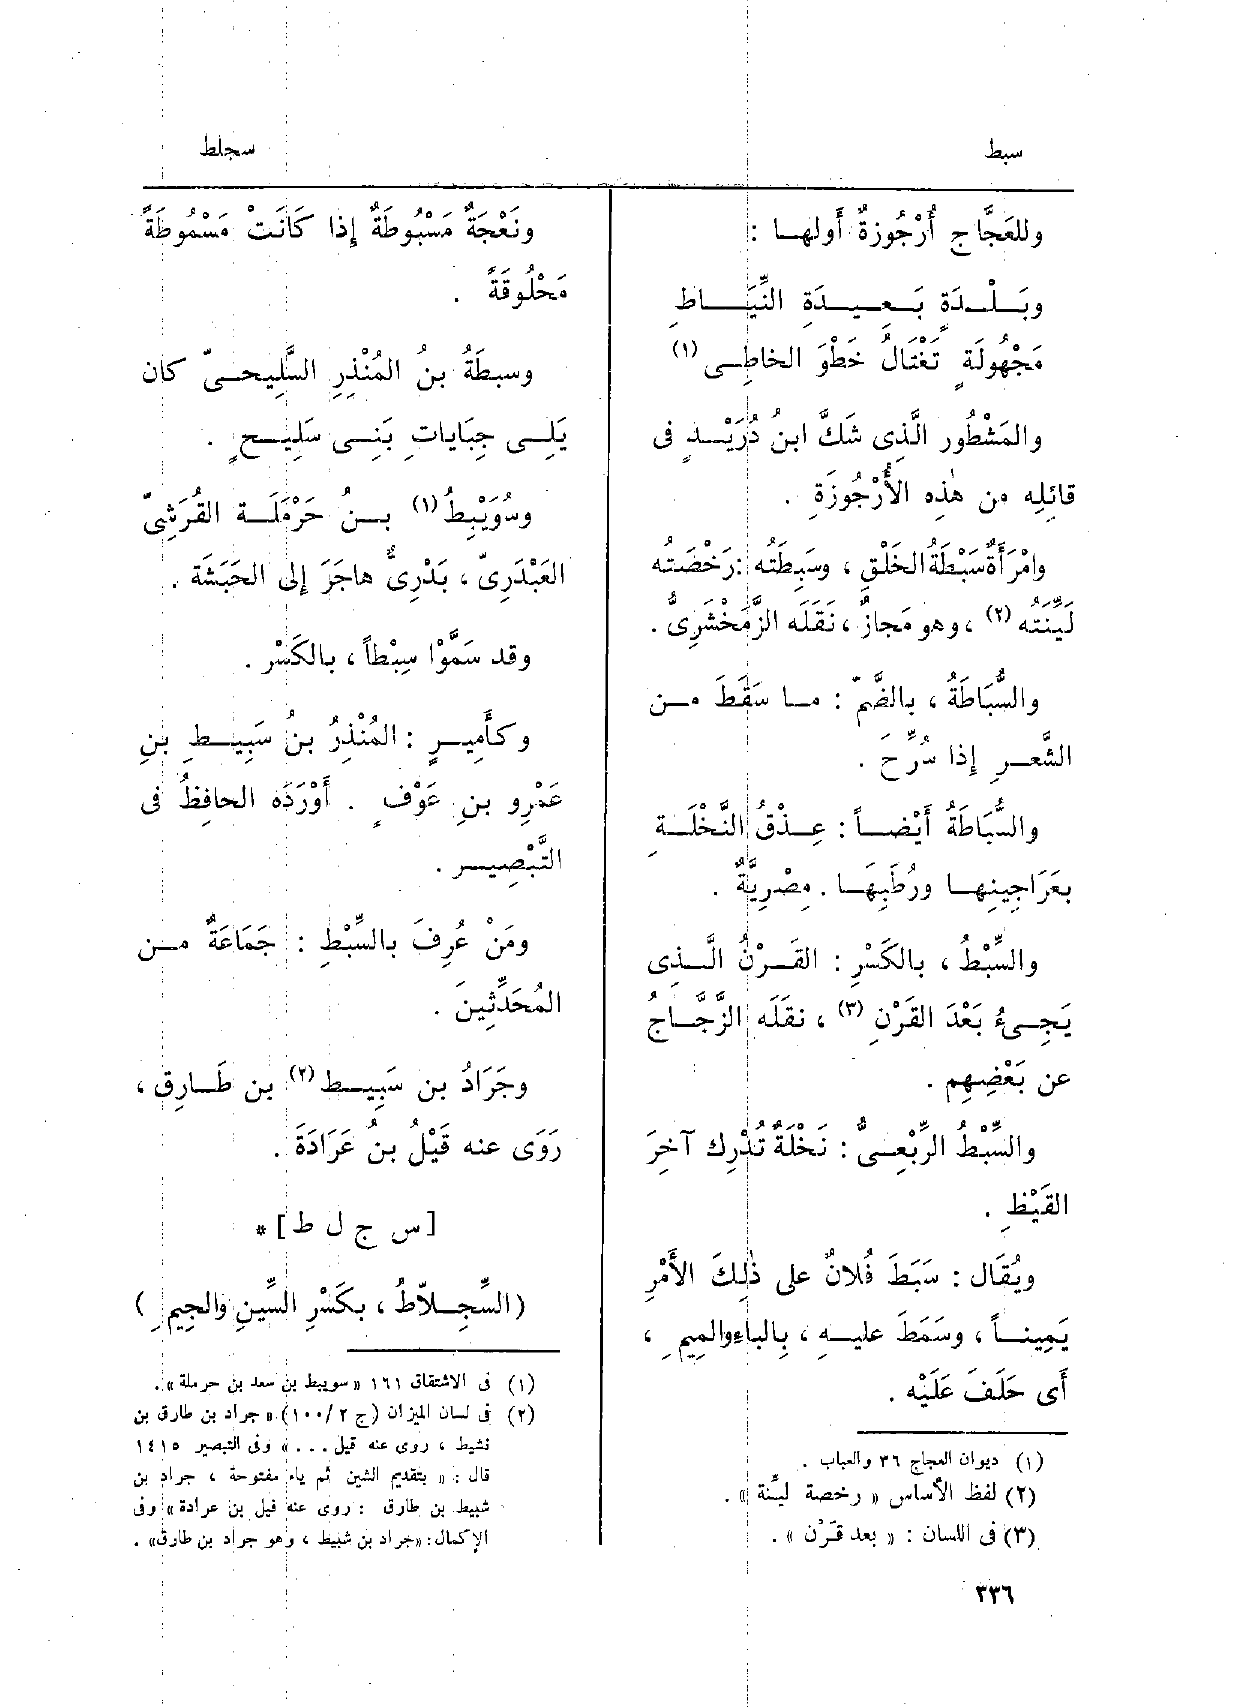 سبط
سجلط
وللعَجَّاجِ أُرْجُوزةٌ أَولهـا :
وبَـلْـدَةٍ بَـعِـيـدَةِ النِّيَـاطِ
مَجْهُولَةٍ تَغْتَالُ خَطْوَ الخاطِـى (١)
والمَشْطُور الَّذِى شَكَّ ابنُ دُرَيْـدٍ فى
قائِلِه من هٰذِه الأُرْجُوزَةِ .
وامْرَأَةٌ سَبْطَةُ الخَلْقِ ، وسَبِطَتُه : رَخْصَتُه
لَيِّنَتُه (٢) ، وهو مَجازٌ ، نَقَلَه الزَّمَخْشَرِىُّ .
والسُّبَاطَةُ ، بالضَّمّ : مـا سَقَطَ مـن
الشَّعـرِ إِذا سُرِّحَ .
والسُّبَاطَةُ أَيْضـاً : عِـذْقُ النَّخْلَـةِ
بعَرَاجِينِهـا ورُطَبِهَـا . مِصْرِيَّةٌ .
والسِّبْطُ ، بالكَسْرِ : القَـرْنُ الَّـذِى
يَجِـىءُ بَعْدَ القَرْنِ (٣) ، نقَلَه الزَّجَّـاجُ
عن بَعْضِهِم .
والسِّبْطُ الرِّبْعِـىُّ : نَخْلَةٌ تُدْرِك آخِرَ
القَيْظِ .
ويُقَال : سَبَطَ فُلانٌ على ذٰلِكَ الأَمْرِ
يَمِينـاً ، وسَمَطَ عليـهِ ، بِالباءِ والمِيمِ ،
أَى حَلَفَ عَلَيْه .
(١) ديوان العجاج ٣٦ والعباب .
(٢) لفظ الأساس « رخصة ليِّنة » .
(٣) فى اللسان : « بعد قَرْن » .
ونَعْجَةٌ مَسْبُوطَةٌ إِذا كَانَتْ مَسْمُوطَةً
مَحْلُوقَةً .
وسبطَةُ بنُ المُنْذِرِ السَّلِيحـىّ كان
يَلِـى جِبَايَاتِ بَنِـى سَلِيـحٍ .
وسُوَيْبِطُ (١) بـنُ حَرْمَلَـة القُرَشِىّ
العَبْدَرِىّ ، بَدْرِىٌّ هاجَرَ إِلى الحَبَشَة .
وقد سَمَّوْا سِبْطاً ، بالكَسْر .
وكأَمِيـرٍ : المُنْذِرُ بنُ سَبِيـطِ بنِ
عَمْرِو بنِ عَوْفٍ . أَوْرَدَه الحافِظُ فى
التَّبْصِيـر .
ومَنْ عُرِفَ بالسِّبْطِ : جَمَاعَةٌ مـن
المُحَدِّثِينَ .
وجَرَادُ بن سَبِيـط (٢) بن طَـارِق ،
رَوَى عنه قَيْلُ بنُ عَرَادَةَ .
[ س ج ل ط ] *
( السِّجِـلاّطُ ، بكَسْرِ السِّينِ والجِيمِ )
(١) فى الاشتقاق ١٦١ « سويبط بن سعد بن حرملة » .
(٢) فى لسان الميزان (ج ٢/ ١٠٠) « جراد بن طارق بن
نشيط ، روى عنه قيل . . . » وفى التبصير ١٤١٥
قال : « بتقديم الشين ثم ياء مفتوحة ، جراد بن
شييط بن طارق : روى عنه قيل بن عرادة » وفى
الإكمال : « جراد بن شييط ، وهو جراد بن طارق » .
٣٣٦